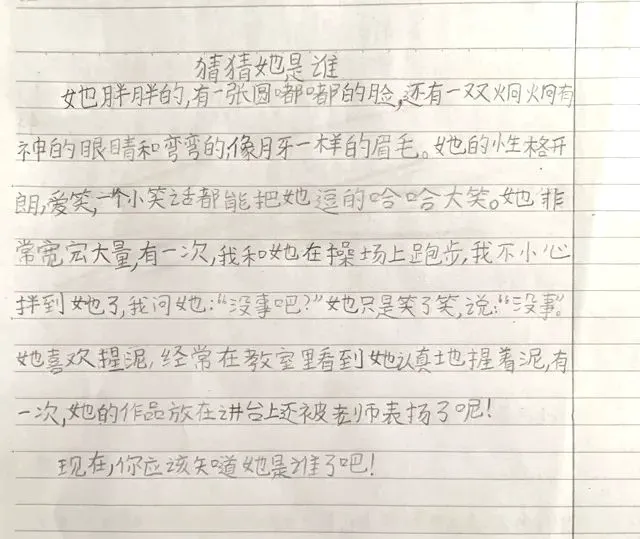 猜猜她是谁
她胖胖的,有一张圆嘟嘟的脸,还有一双炯炯有
神的眼睛和弯弯的,像月牙一样的眉毛。她的性格开
朗,爱笑,一个小笑话都能把她逗的哈哈大笑。她非
常宽宏大量,有一次,我和她在操场上跑步,我不小心
拌到她了,我问她:“没事吧?”她只是笑了笑,说:“没事”。
她喜欢捏泥,经常在教室里看到她认真地捏着泥,有
一次,她的作品放在讲台上还被老师表扬了呢!
现在,你应该知道她是谁了吧!